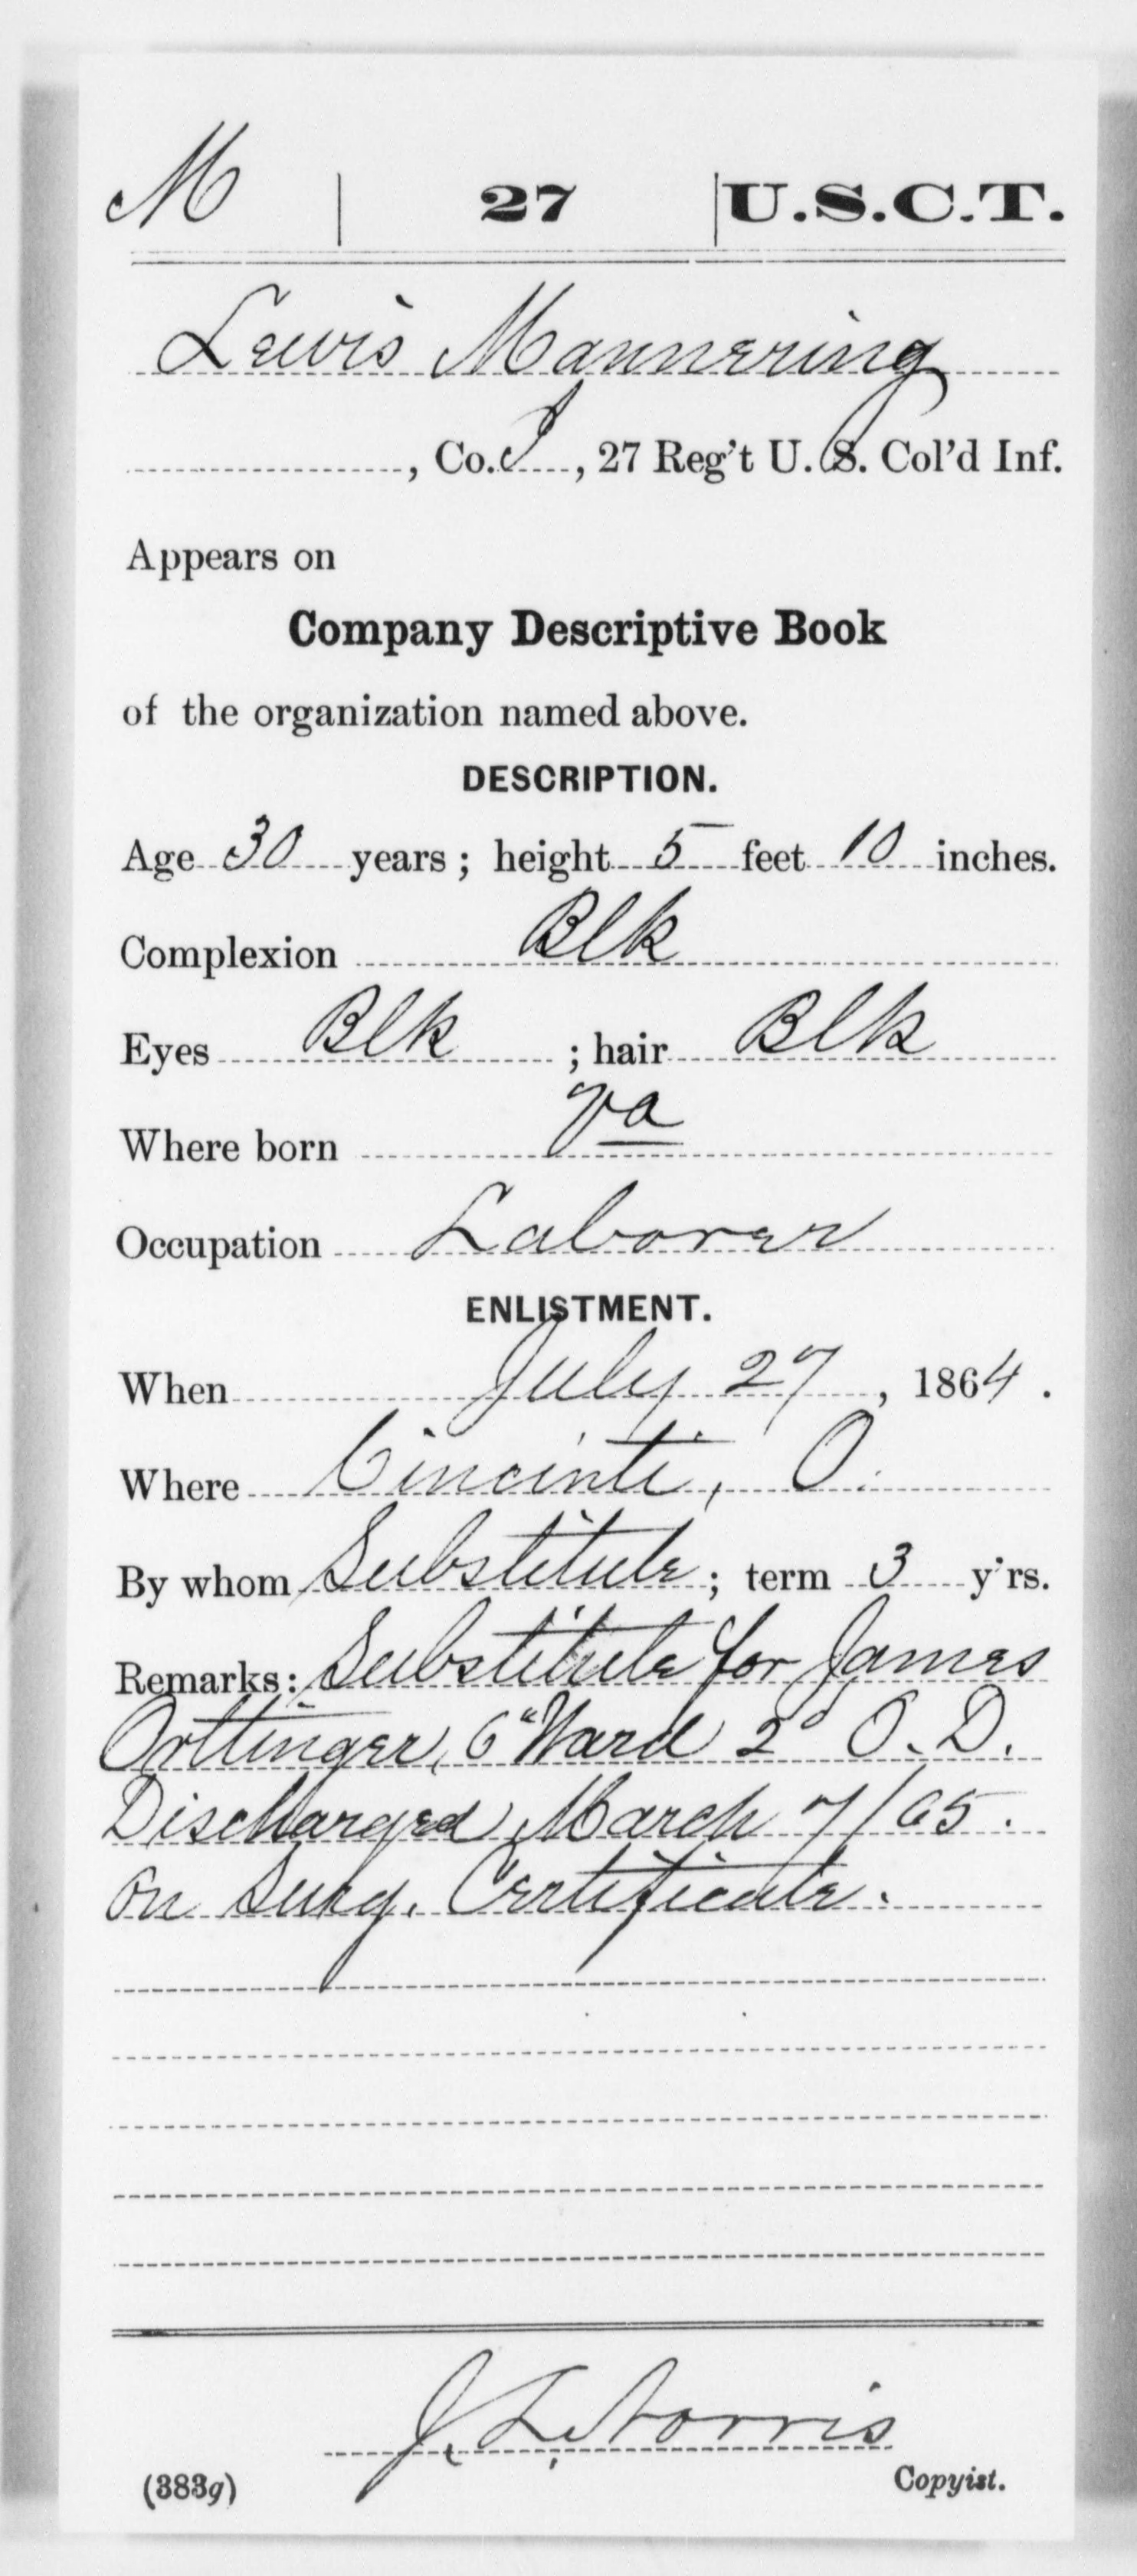 M | 27 | U.S.C.T.
Lewis Mannering
, Co. I, 27 Reg't U. S. Col'd Inf.
Appears on
Company Descriptive Book
of the organization named above.
DESCRIPTION.
Age 30 years; height 5 feet 10 inches.
Complexion Blk
Eyes Blk; hair Blk
Where born Va
Occupation Laborer
ENLISTMENT.
When July 27, 1864.
Where Cincinti, O.
By whom Substitute; term 3 y'rs.
Remarks: Substitute for James
Orttinger, 6" Ward 2° O. D.
Discharged March 7/65.
on Surg. Certificate.
J. L. Norris
(383g) Copyist.